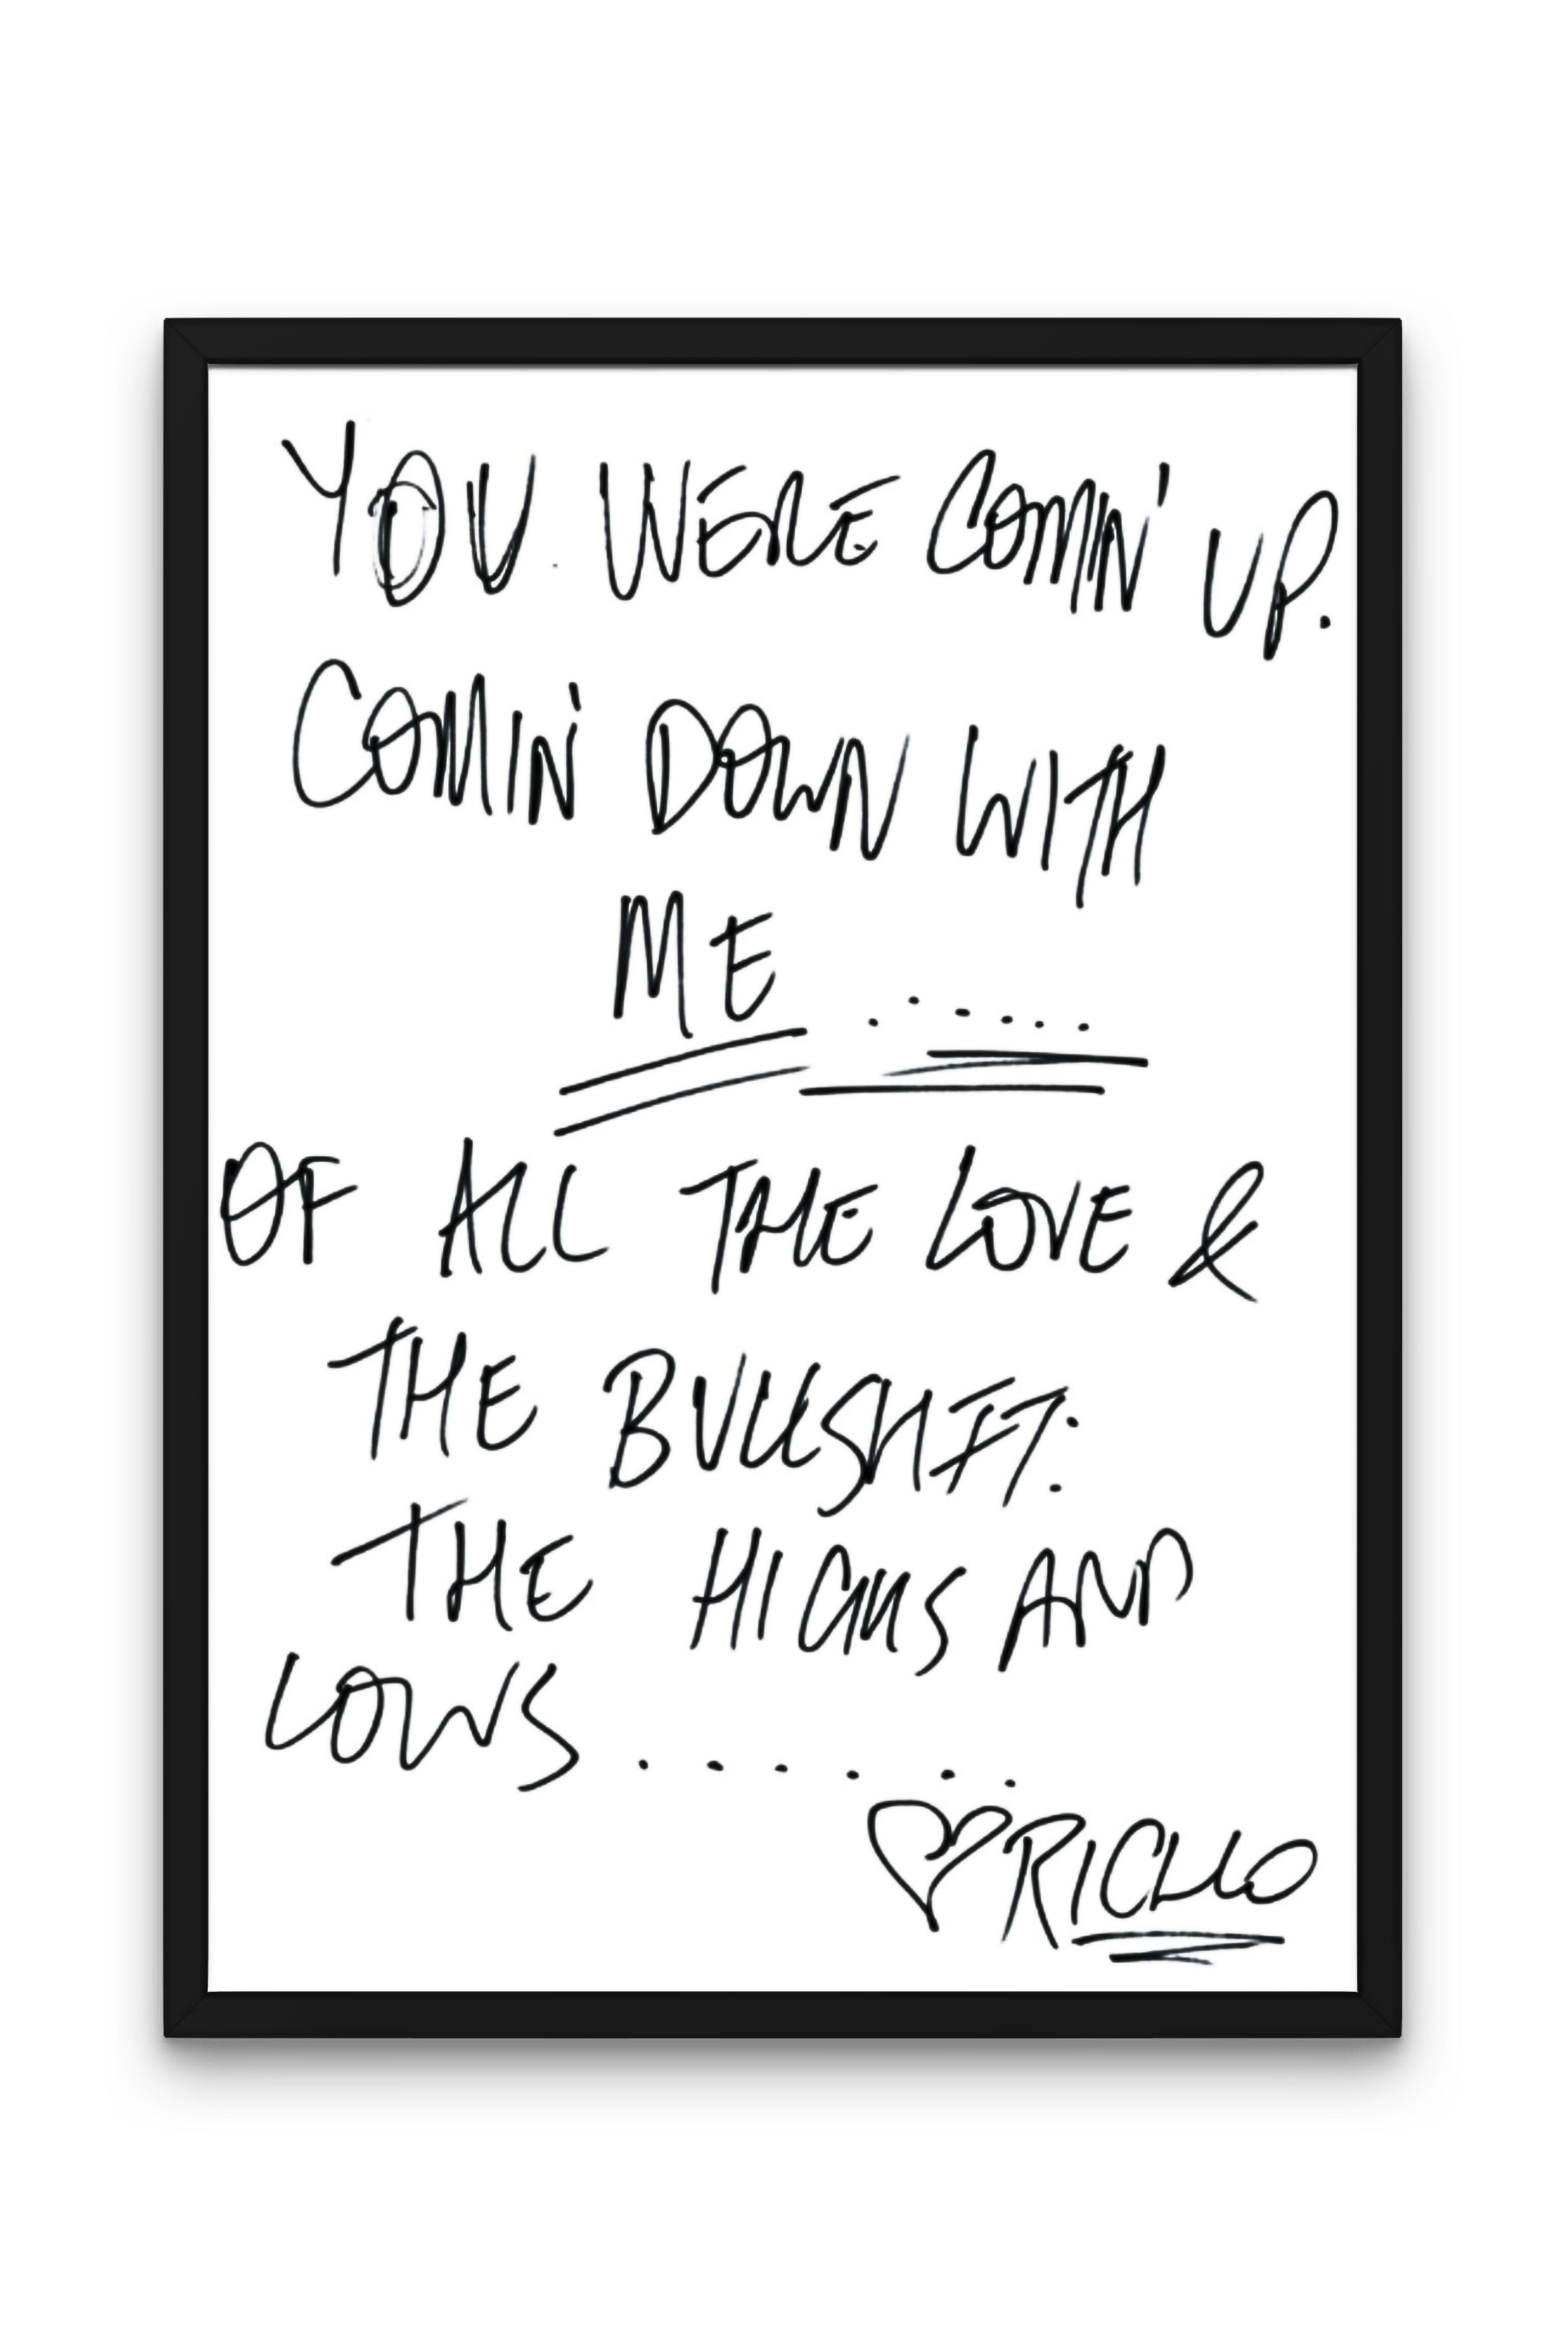 YOU. WERE COMIN' UP.
COMIN' DOWN WITH
ME ......
OF ALL THE LOVE &
THE BULLSHIT:
THE HIGHS AND
LOWS.......
♡ RICHO